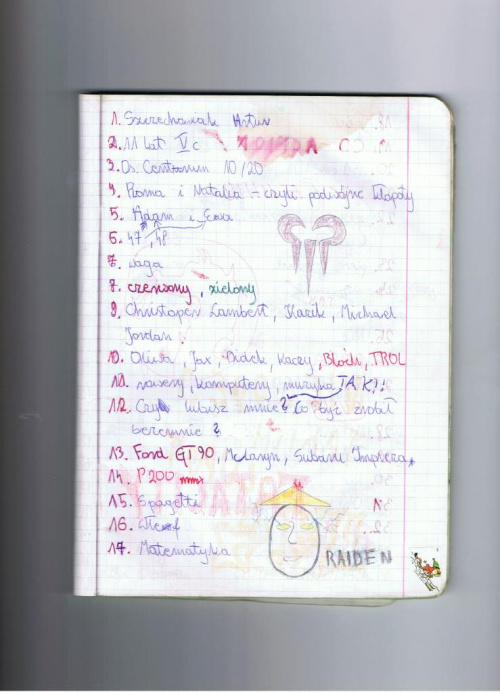 1. Szczechaniak Artur
2. 11 lat IV c
3. Os. Centrum 10/20
4. Roma i Natalia - czyli podwójne kłopoty
5. Adam i Ewa
6. 47, 48
7. waga
8. czerwony, zielony
9. Christoper Lambert, Kacik, Michael
Jordan.
10. Oliwa, Jax, Dudek, Kaczy, Bloch, TROL
11. rowery, komputery, muzyka TAK!!
12. Czy lubisz mnie? Co byś zrobił
bezemnie?
13. Ford GT 90, McLaryn, Subaru Impreza
14. P200 mmx
15. Spagetti
16.
17. Matematyka
RAIDEN